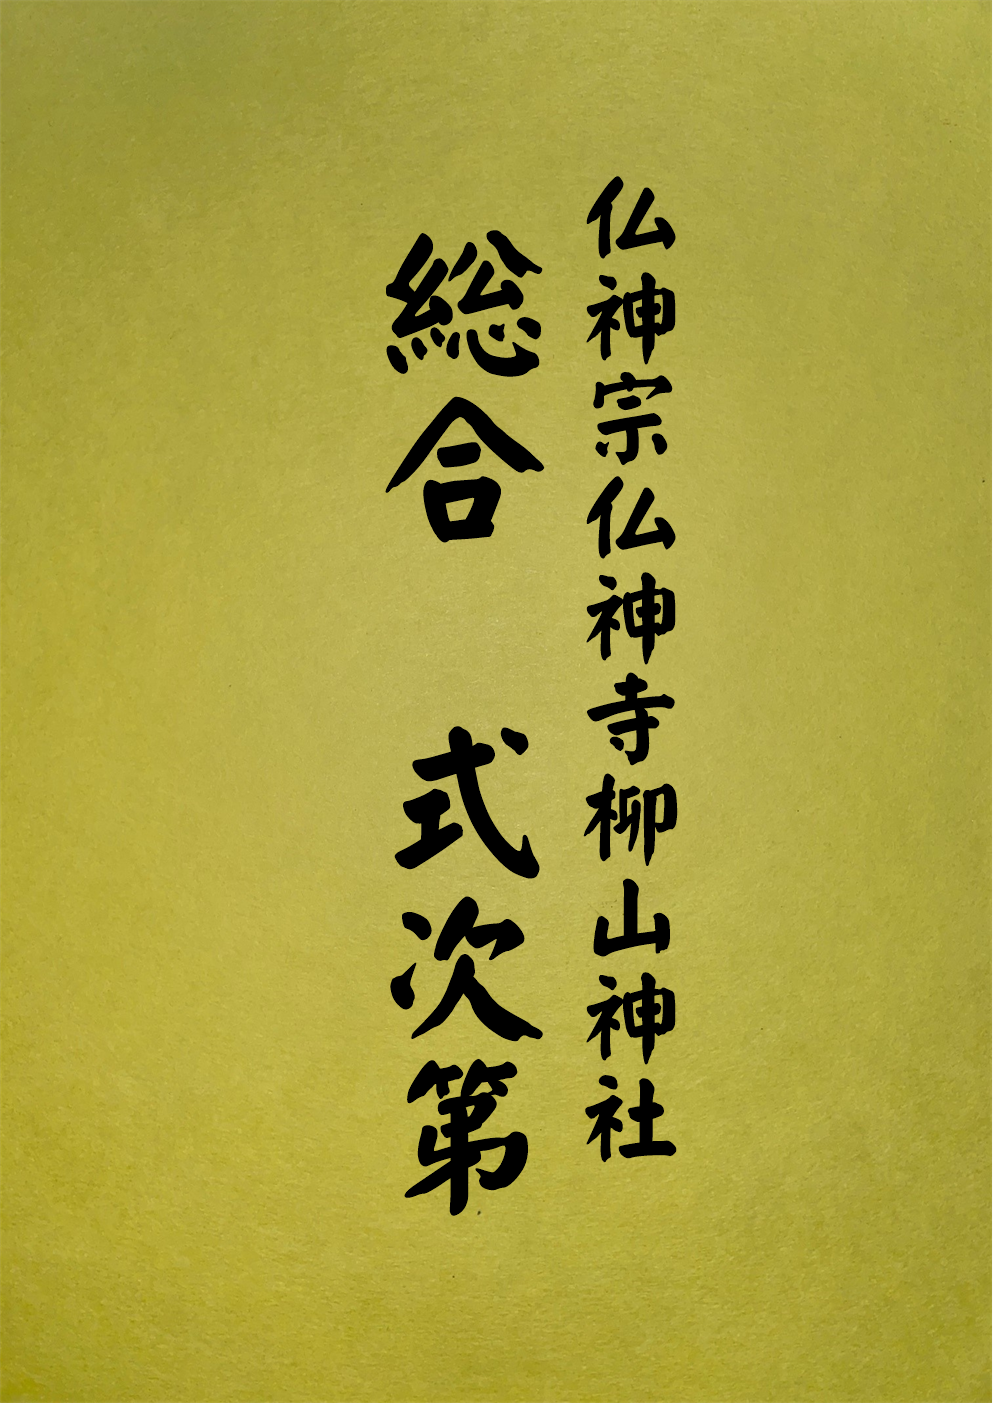 仏神宗仏神寺柳山神社
総合　式次第